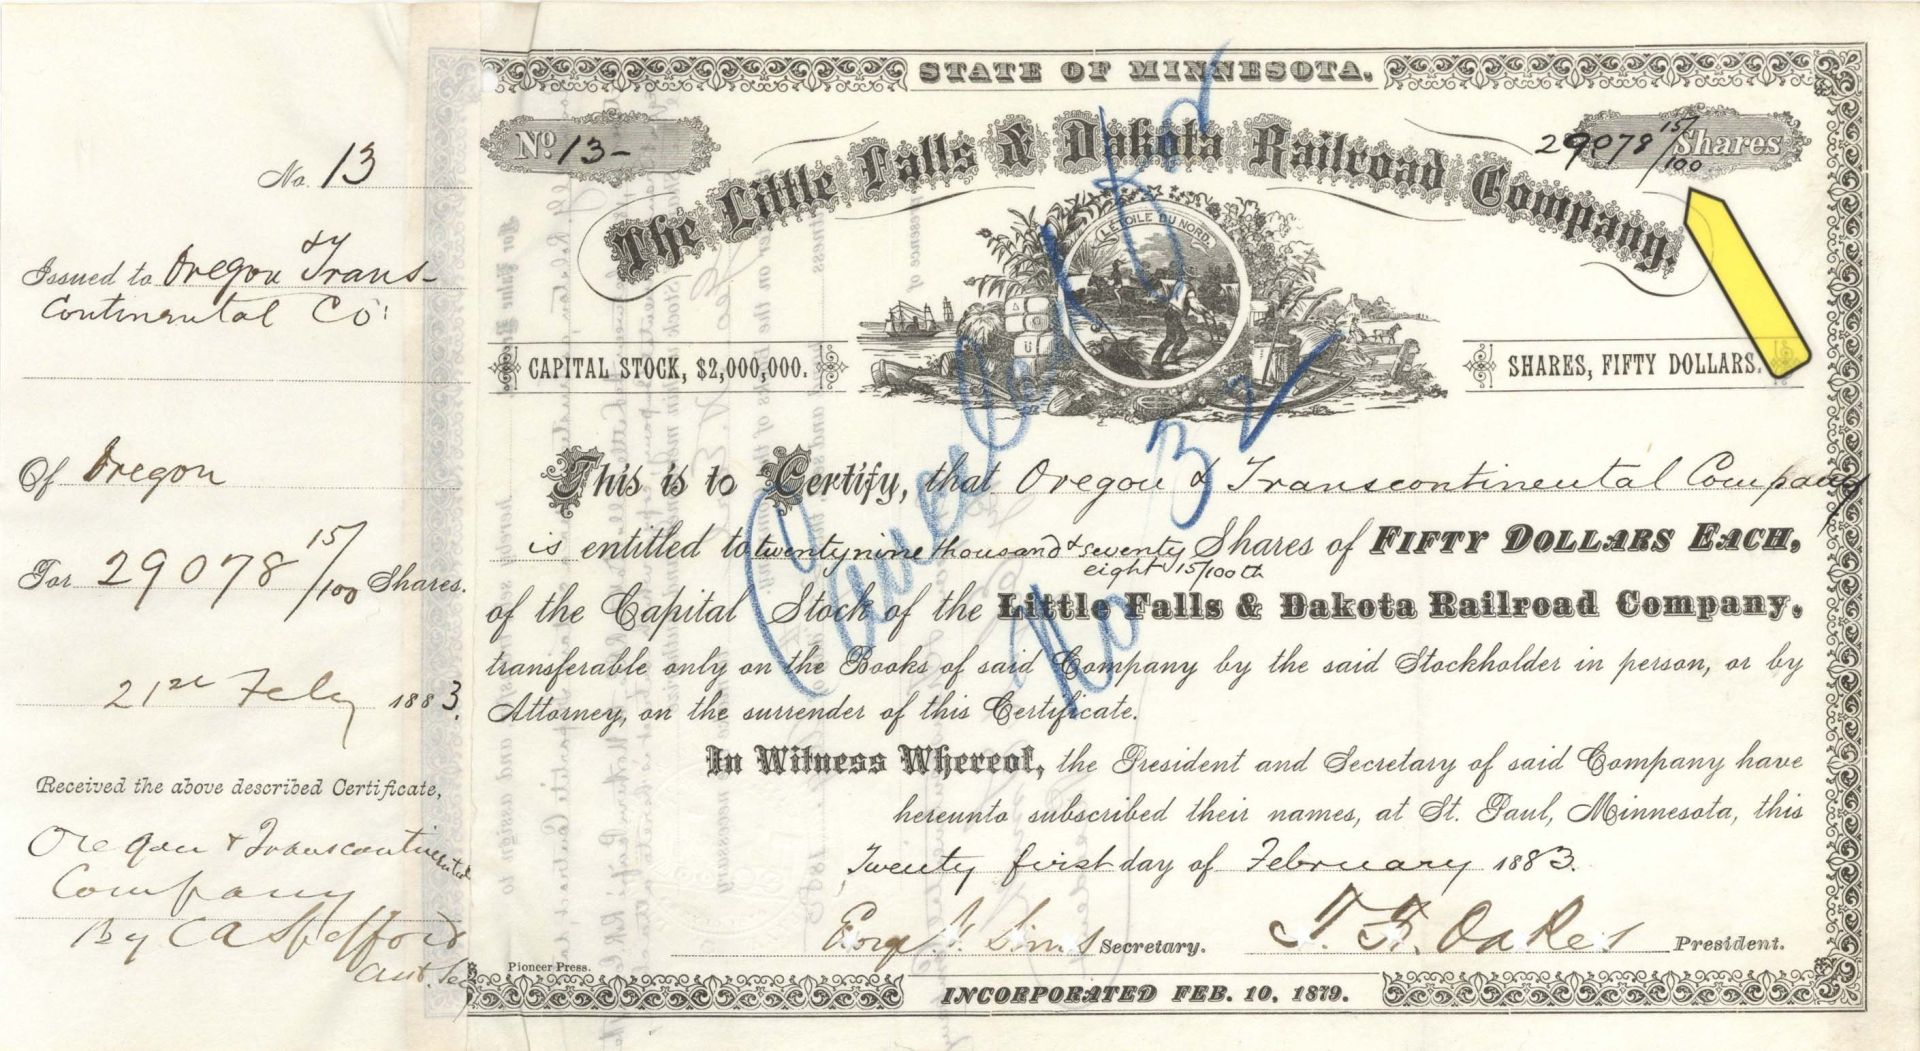 No. 13
Issued to Oregon & Trans-
Continental Co:
Of Oregon
For 29078 15/100 Shares.
21st Feby 1883.
Received the above described Certificate,
Oregon & Transcontinental
Company
By CA Spofford
STATE OF MINNESOTA.
No. 13-
29078 15/100 Shares
The Little Falls & Dakota Railroad Company.
L'ETOILE DU NORD.
CAPITAL STOCK, $2,000,000.
SHARES, FIFTY DOLLARS.
This is to Certify, that Oregon & Transcontinental Company
is entitled to twenty nine thousand & seventy Shares of FIFTY DOLLARS EACH,
eight 15/100th
of the Capital Stock of the Little Falls & Dakota Railroad Company,
transferable only on the Books of said Company by the said Stockholder in person, or by
Attorney, on the surrender of this Certificate.
In Witness Whereof, the President and Secretary of said Company have
hereunto subscribed their names, at St. Paul, Minnesota, this
Twenty first day of February 1883.
George H. Sims Secretary. T. F. Oakes President.
Pioneer Press.
INCORPORATED FEB. 10, 1879.
Cancelled
No 32